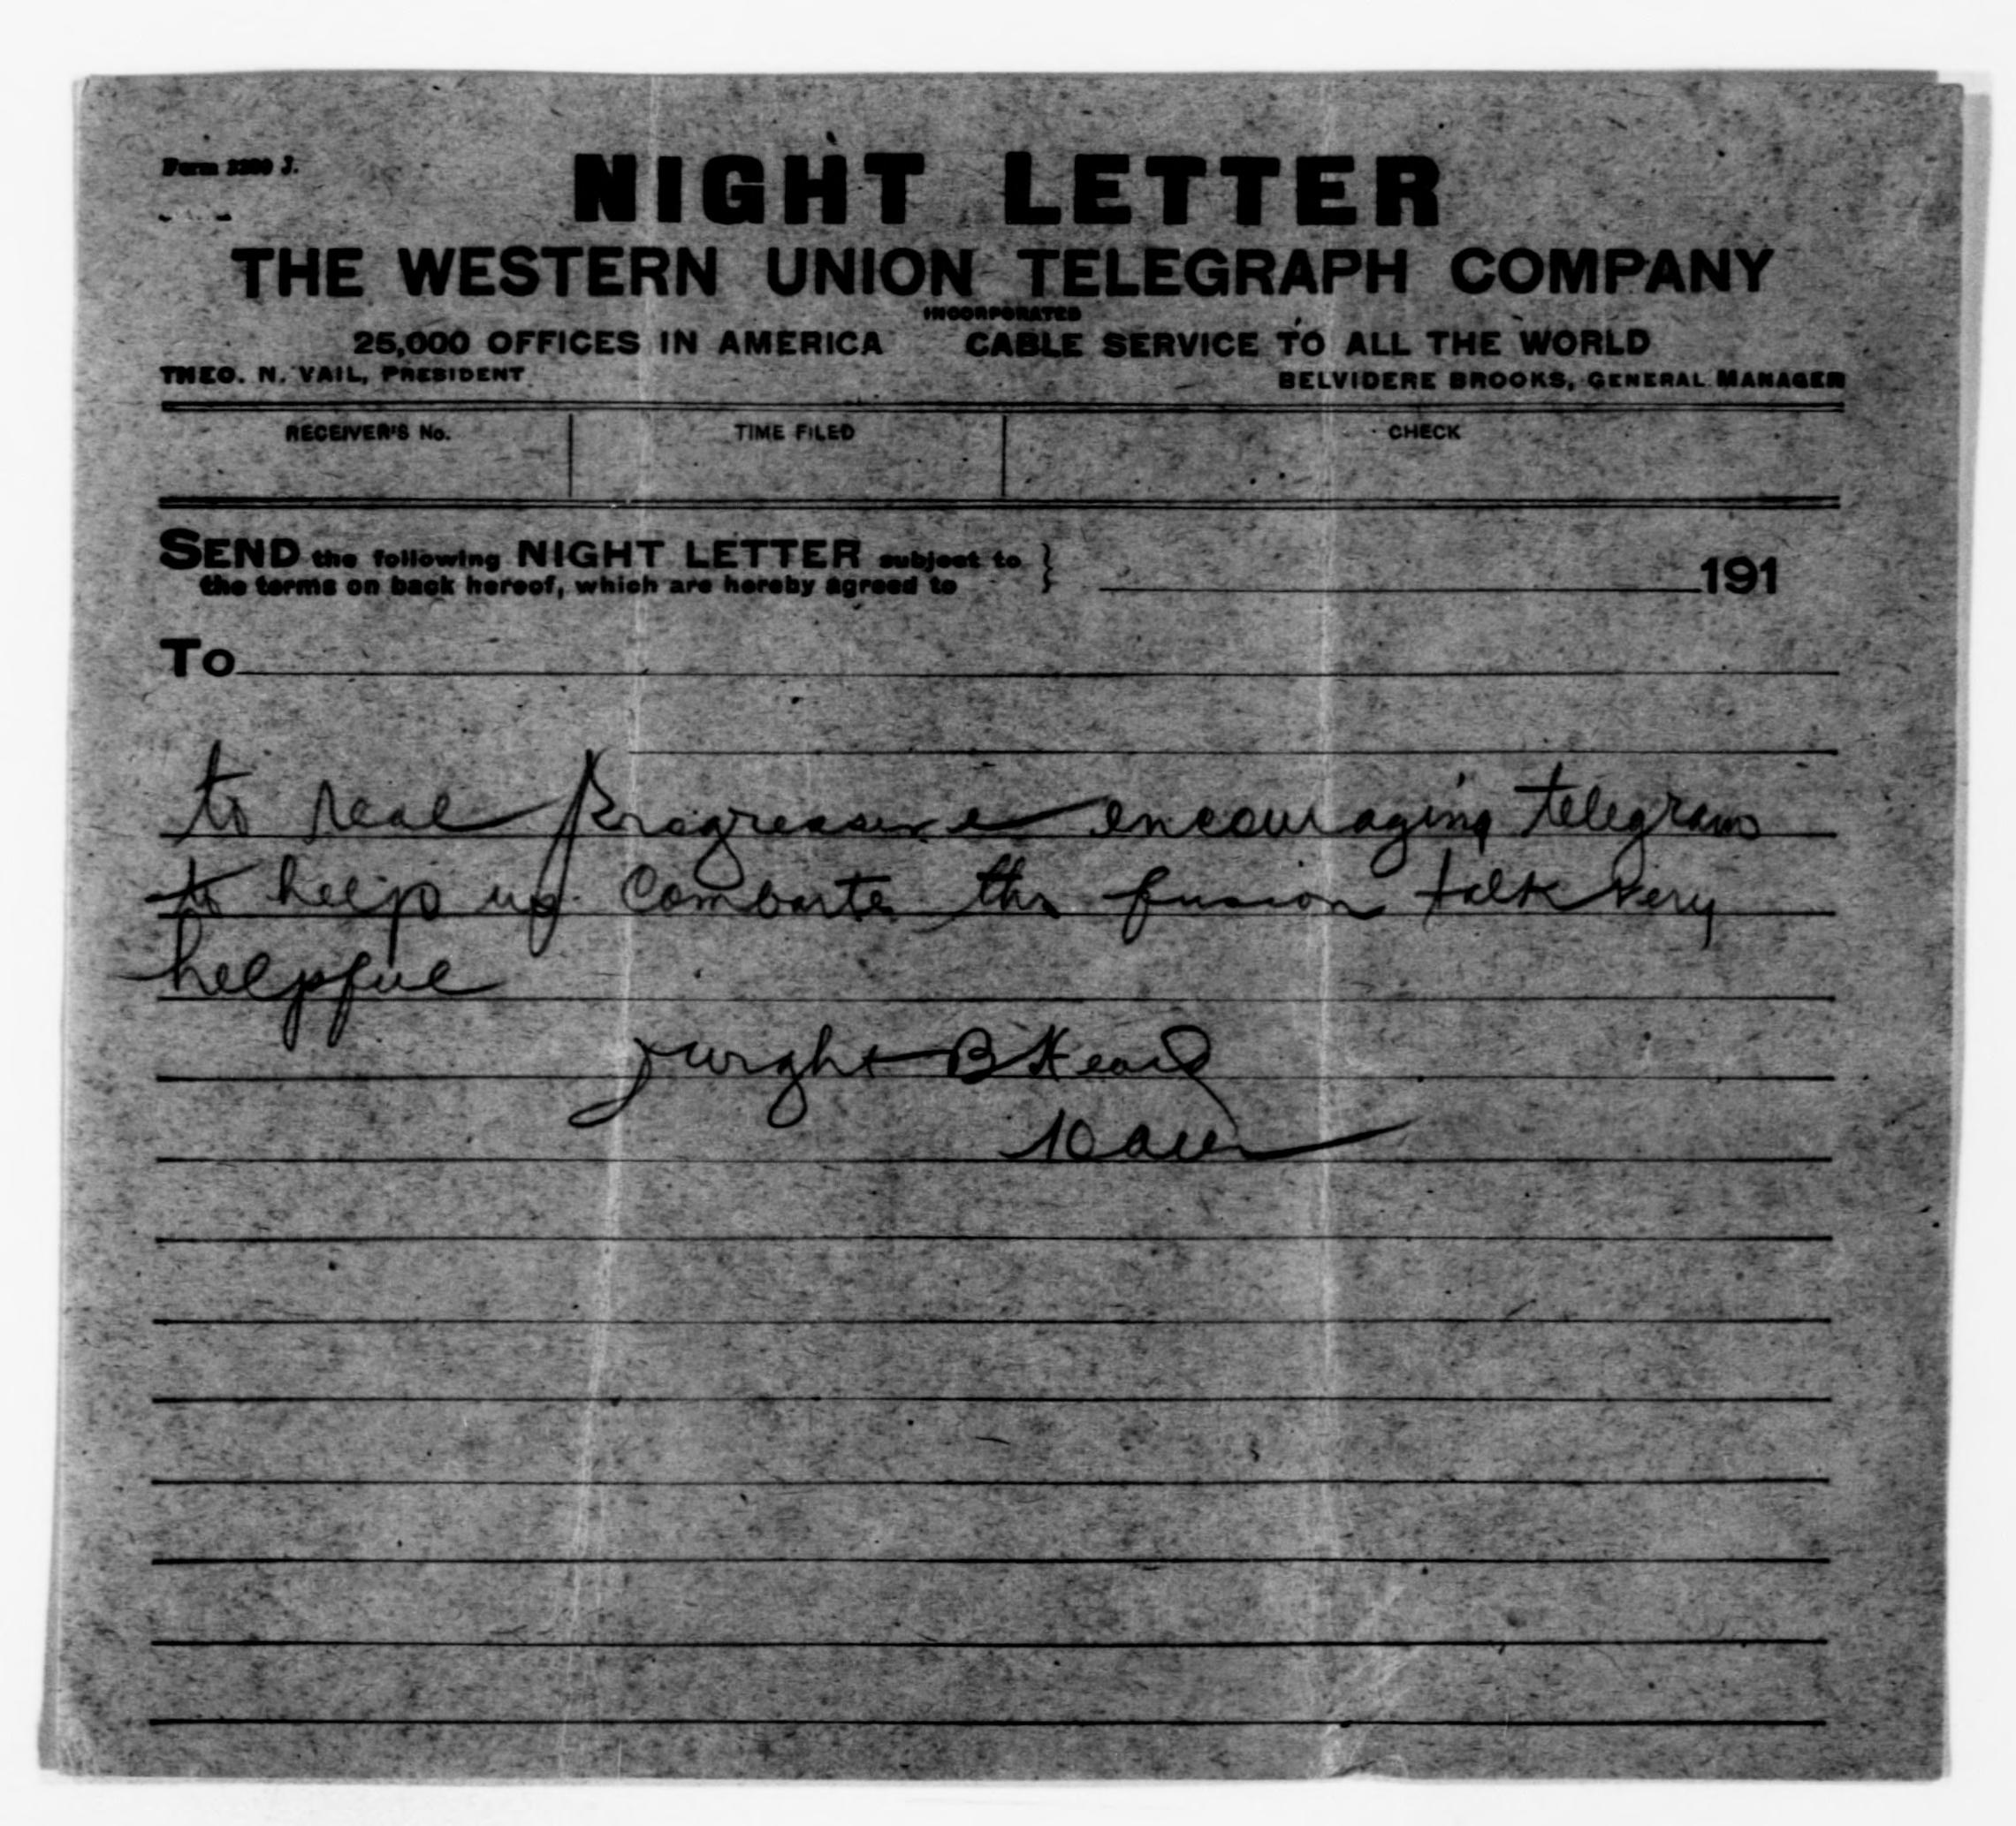 Form 2289 J.
NIGHT LETTER
THE WESTERN UNION TELEGRAPH COMPANY
INCORPORATED
25,000 OFFICES IN AMERICA CABLE SERVICE TO ALL THE WORLD
THEO. N. VAIL, PRESIDENT BELVIDERE BROOKS, GENERAL MANAGER
RECEIVER'S No. TIME FILED CHECK
SEND the following NIGHT LETTER subject to
the terms on back hereof, which are hereby agreed to
191
To
to real Progressive encouraging telegram
to help us combate the fusion talk very
helpful
Dwight B Heard